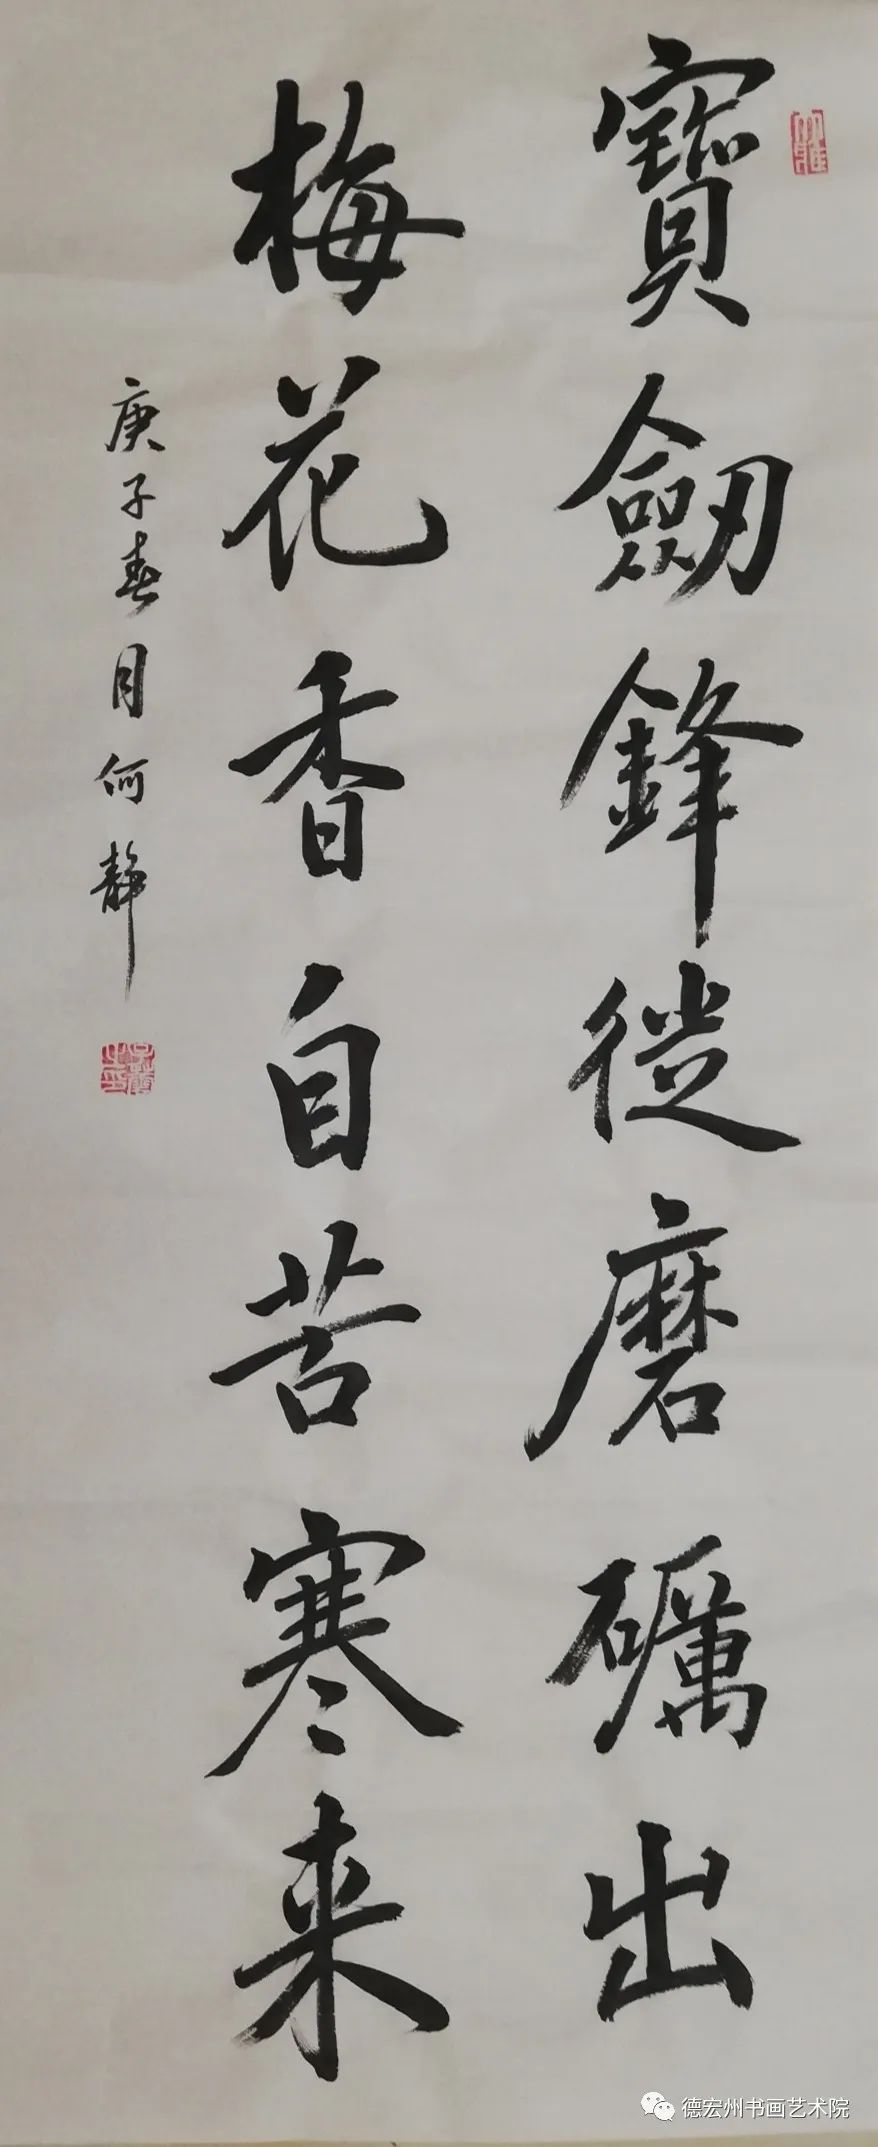 寶劒鋒從磨礪出
梅花香自苦寒来
庚子春月何静
德宏州书画艺术院